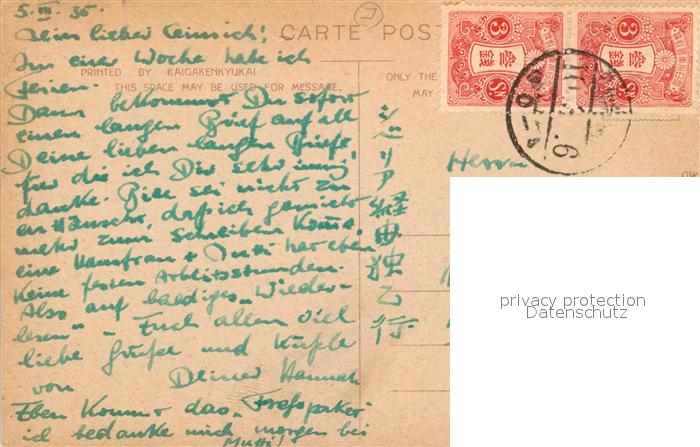 5. III. 35.
CARTE POST
Mein lieber Heinrich!
In einer Woche habe ich
PRINTED BY KAIGAKENKYUKAI
Ferien.
THIS SPACE MAY BE USED FOR MESSAGE.
ONLY THE
MAY
Dann bekommst Du sofort
einen langen Brief auf all
Deine lieben langen Briefe
für die ich Dir sehr innig
danke. Bitte sei nicht zu
enttäuscht, daß ich jetzt nicht
mehr zum Schreiben komme.
eine Hausfrau + Mutti hat eben
keine festen Arbeitsstunden.
Also auf baldiges „Wieder-
lesen" – Euch allen viel
liebe Grüße und Küsse
von Deiner Hannah
Eben kommt das „Freßpaket"
ich bedanke mich morgen bei
Mutti!
シベリア経由独乙行
Herrn
3 3
参銭 参銭
privacy protection
Datenschutz